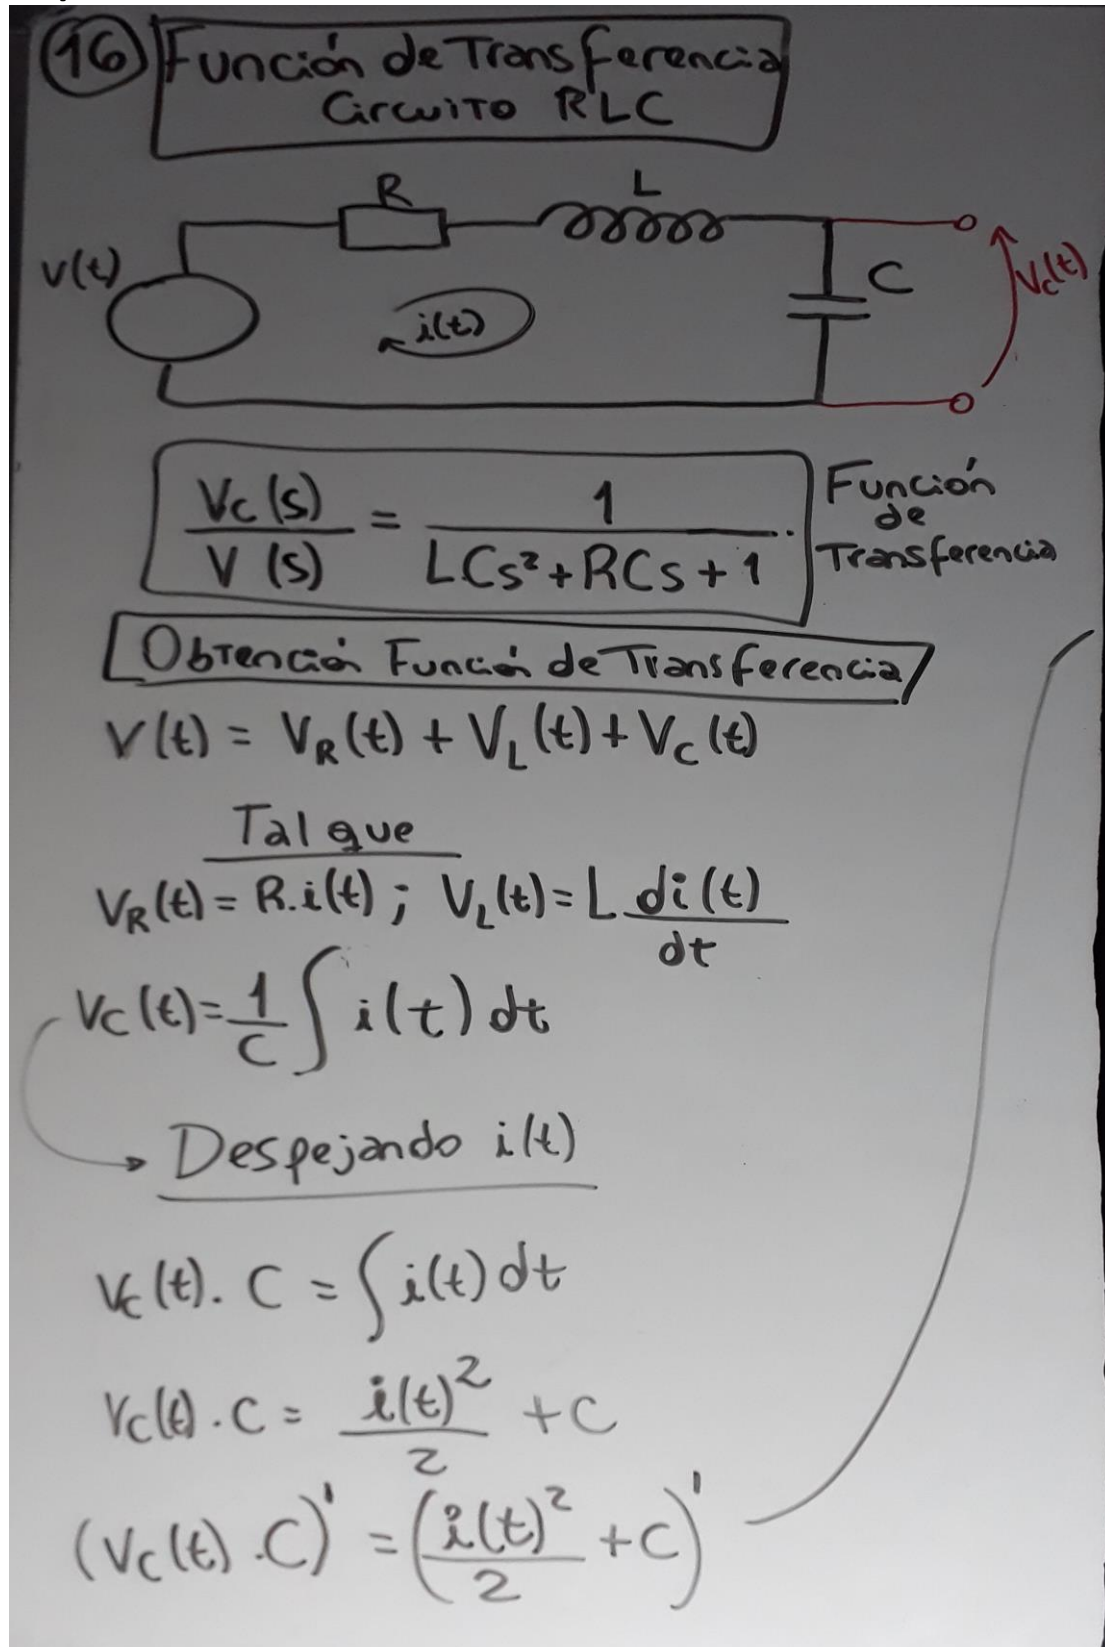 16 Función de Transferencia
Circuito RLC
R
L
V(t)
i(t)
C
Vc(t)
Vc(s) / V(s) = 1 / LCs² + RCs + 1
Función
de
Transferencia
Obtención Función de Transferencia
V(t) = V_R(t) + V_L(t) + V_C(t)
Tal que
V_R(t) = R.i(t) ; V_L(t) = L di(t)/dt
Vc(t) = 1/C ∫ i(t) dt
Despejando i(t)
Vc(t). C = ∫ i(t) dt
Vc(t) . C = i(t)²/2 + C
(Vc(t) . C)' = (i(t)²/2 + C)'